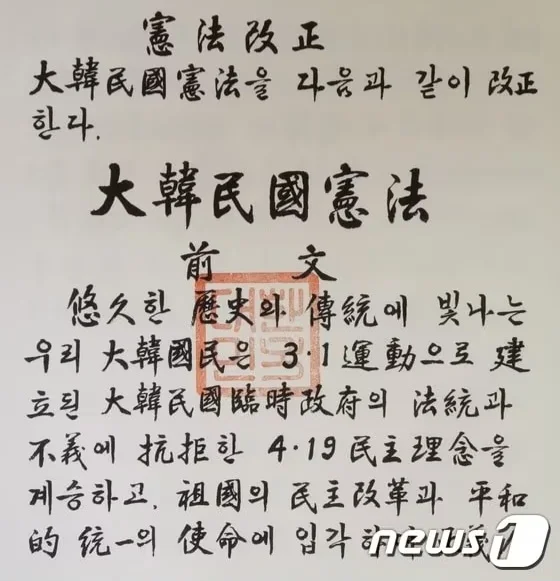 憲法改正
大韓民國憲法을 다음과 같이 改正
한다.
大韓民國憲法
前 文
悠久한 歷史와 傳統에 빛나는
우리 大韓國民은 3·1運動으로 建
立된 大韓民國臨時政府의 法統과
不義에 抗拒한 4·19民主理念을
계승하고, 祖國의 民主改革과 平和
的 統一의 使命에 입각
news1